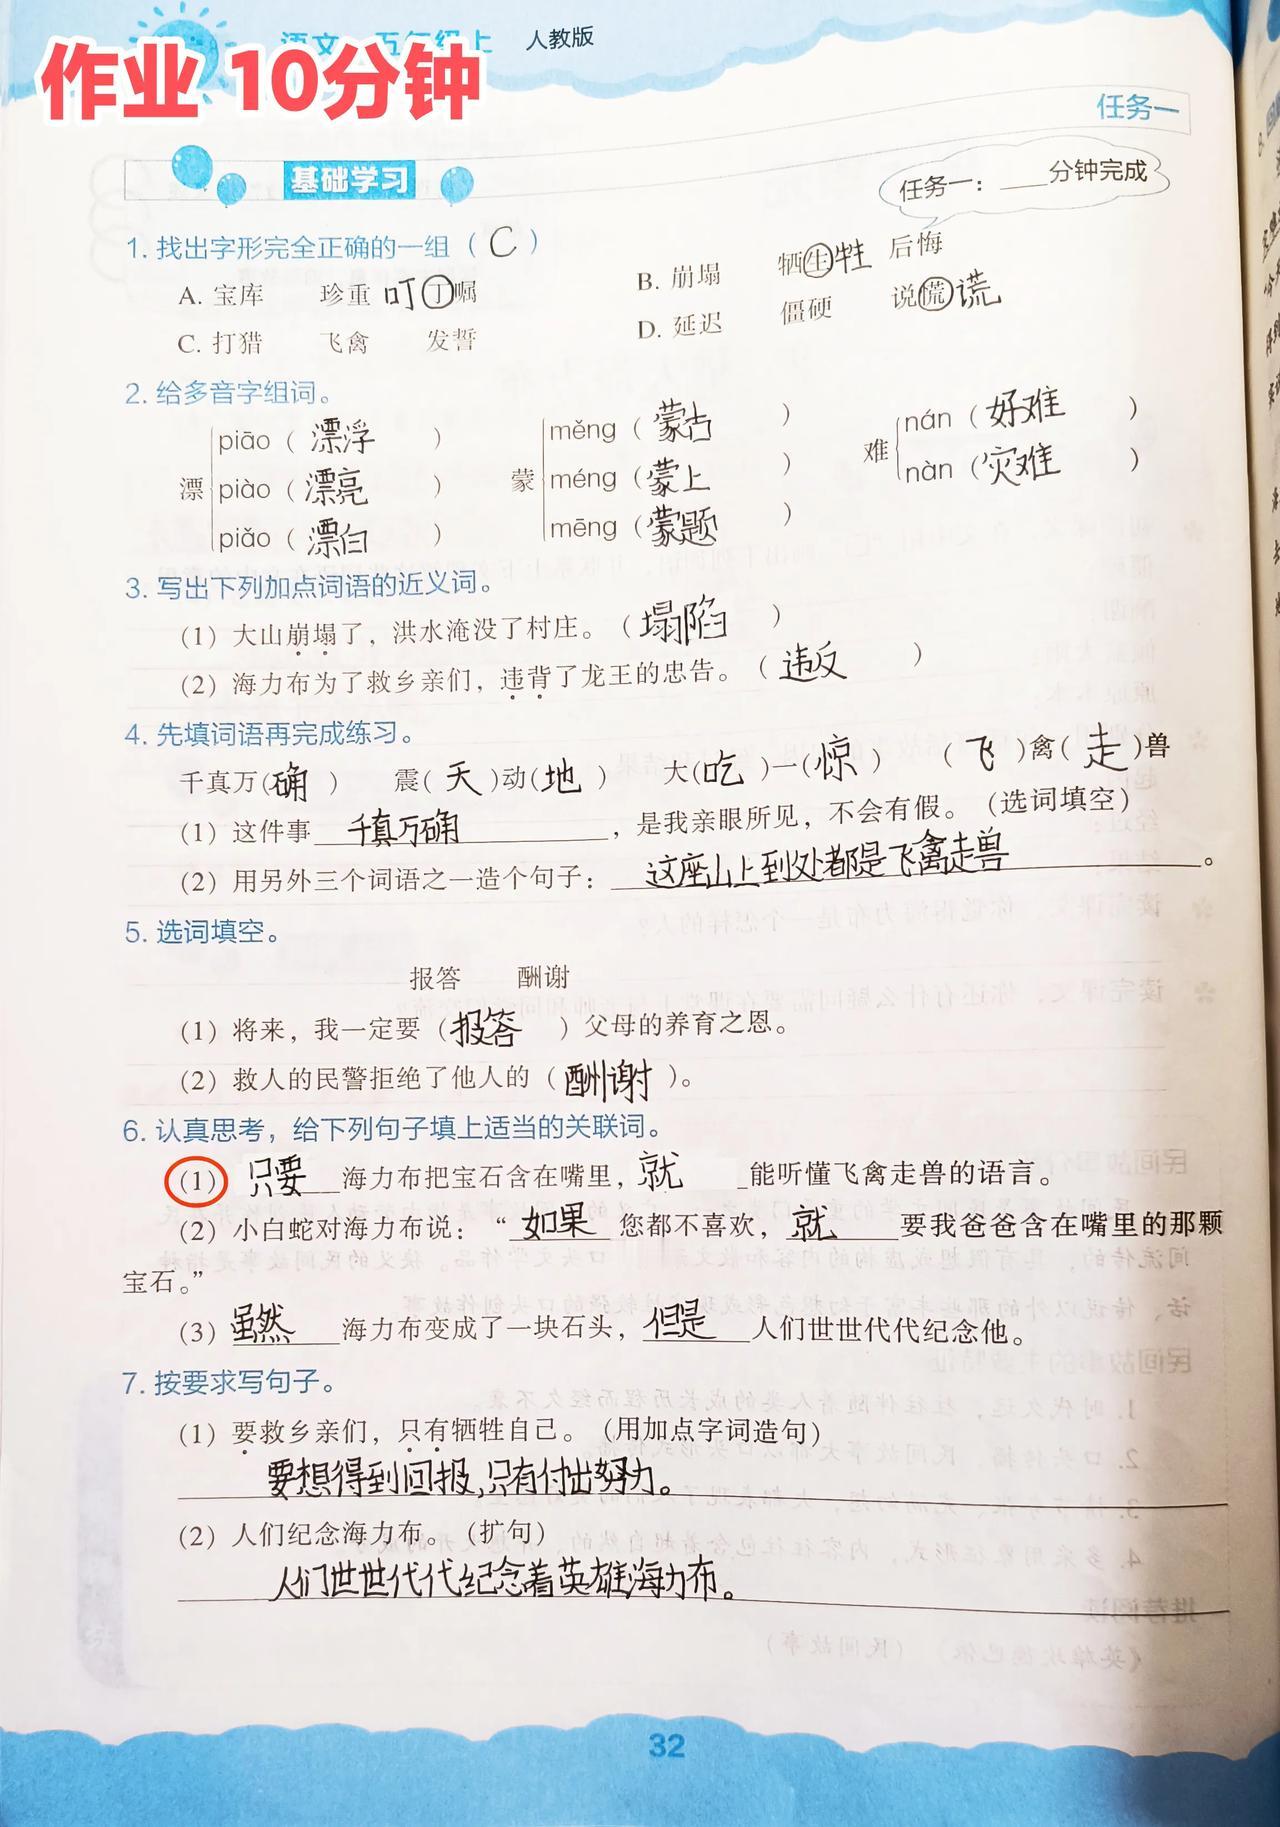 语文 五年级上 人教版
作业 10分钟
任务一
基础学习
任务一：____分钟完成
1. 找出字形完全正确的一组（ C ）
A. 宝库 珍重 叮丁嘱 B. 崩塌 牺生牲 后悔
C. 打猎 飞禽 发誓 D. 延迟 僵硬 说慌谎
2. 给多音字组词。
漂 piāo（ 漂浮 ） 蒙 měng（ 蒙古 ） 难 nán（ 好难 ）
piào（ 漂亮 ） méng（ 蒙上 ） nàn（ 灾难 ）
piǎo（ 漂白 ） mēng（ 蒙题 ）
3. 写出下列加点词语的近义词。
（1）大山崩塌了，洪水淹没了村庄。（ 塌陷 ）
（2）海力布为了救乡亲们，违背了龙王的忠告。（ 违反 ）
4. 先填词语再完成练习。
千真万（确） 震（天）动（地） 大（吃）一（惊） （飞）禽（走）兽
（1）这件事 千真万确 ，是我亲眼所见，不会有假。（选词填空）
（2）用另外三个词语之一造个句子： 这座山上到处都是飞禽走兽 。
5. 选词填空。
报答 酬谢
（1）将来，我一定要（报答）父母的养育之恩。
（2）救人的民警拒绝了他人的（酬谢）。
6. 认真思考，给下列句子填上适当的关联词。
（1） 只要 海力布把宝石含在嘴里， 就 能听懂飞禽走兽的语言。
（2）小白蛇对海力布说：“ 如果 您都不喜欢， 就 要我爸爸含在嘴里的那颗
宝石。”
（3） 虽然 海力布变成了一块石头， 但是 人们世世代代纪念他。
7. 按要求写句子。
（1）要救乡亲们，只有牺牲自己。（用加点字词造句）
要想得到回报，只有付出努力。
（2）人们纪念海力布。（扩句）
人们世世代代纪念着英雄海力布。
32